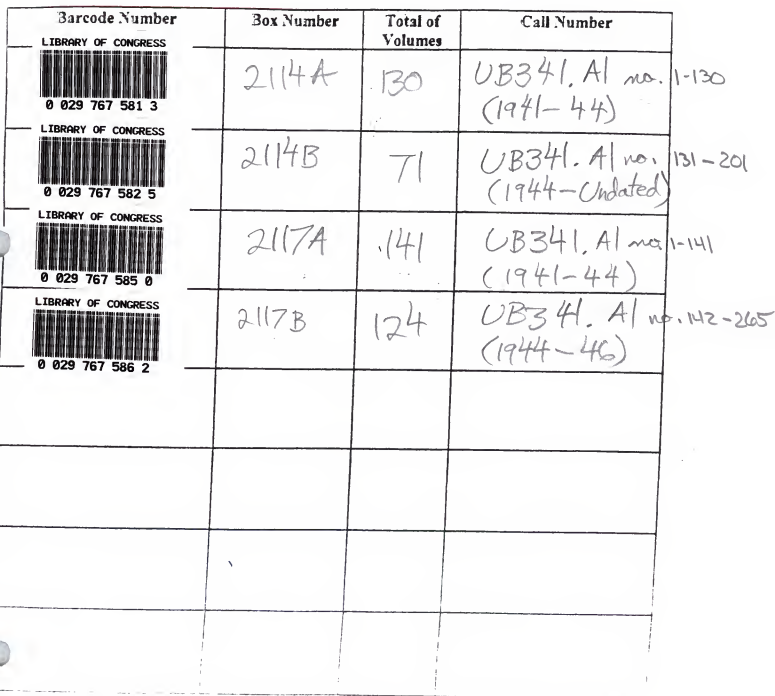 Barcode Number Box Number Total of Volumes Call Number
LIBRARY OF CONGRESS
0 029 767 581 3
2114A 130 UB341. A1 no. 1-130
(1941-44)
LIBRARY OF CONGRESS
0 029 767 582 5
2114B 71 UB341. A1 no. 131-201
(1944-Undated)
LIBRARY OF CONGRESS
0 029 767 585 0
2117A 141 UB341. A1 no. 1-141
(1941-44)
LIBRARY OF CONGRESS
0 029 767 586 2
2117B 124 UB341. A1 no. 142-265
(1944-46)